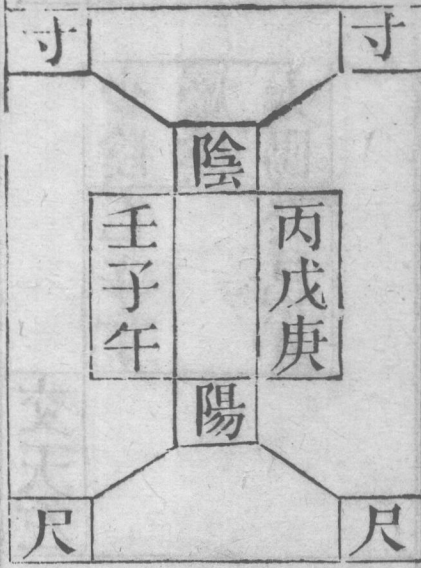 寸
寸
陰
丙戊庚
壬子午
陽
尺
尺